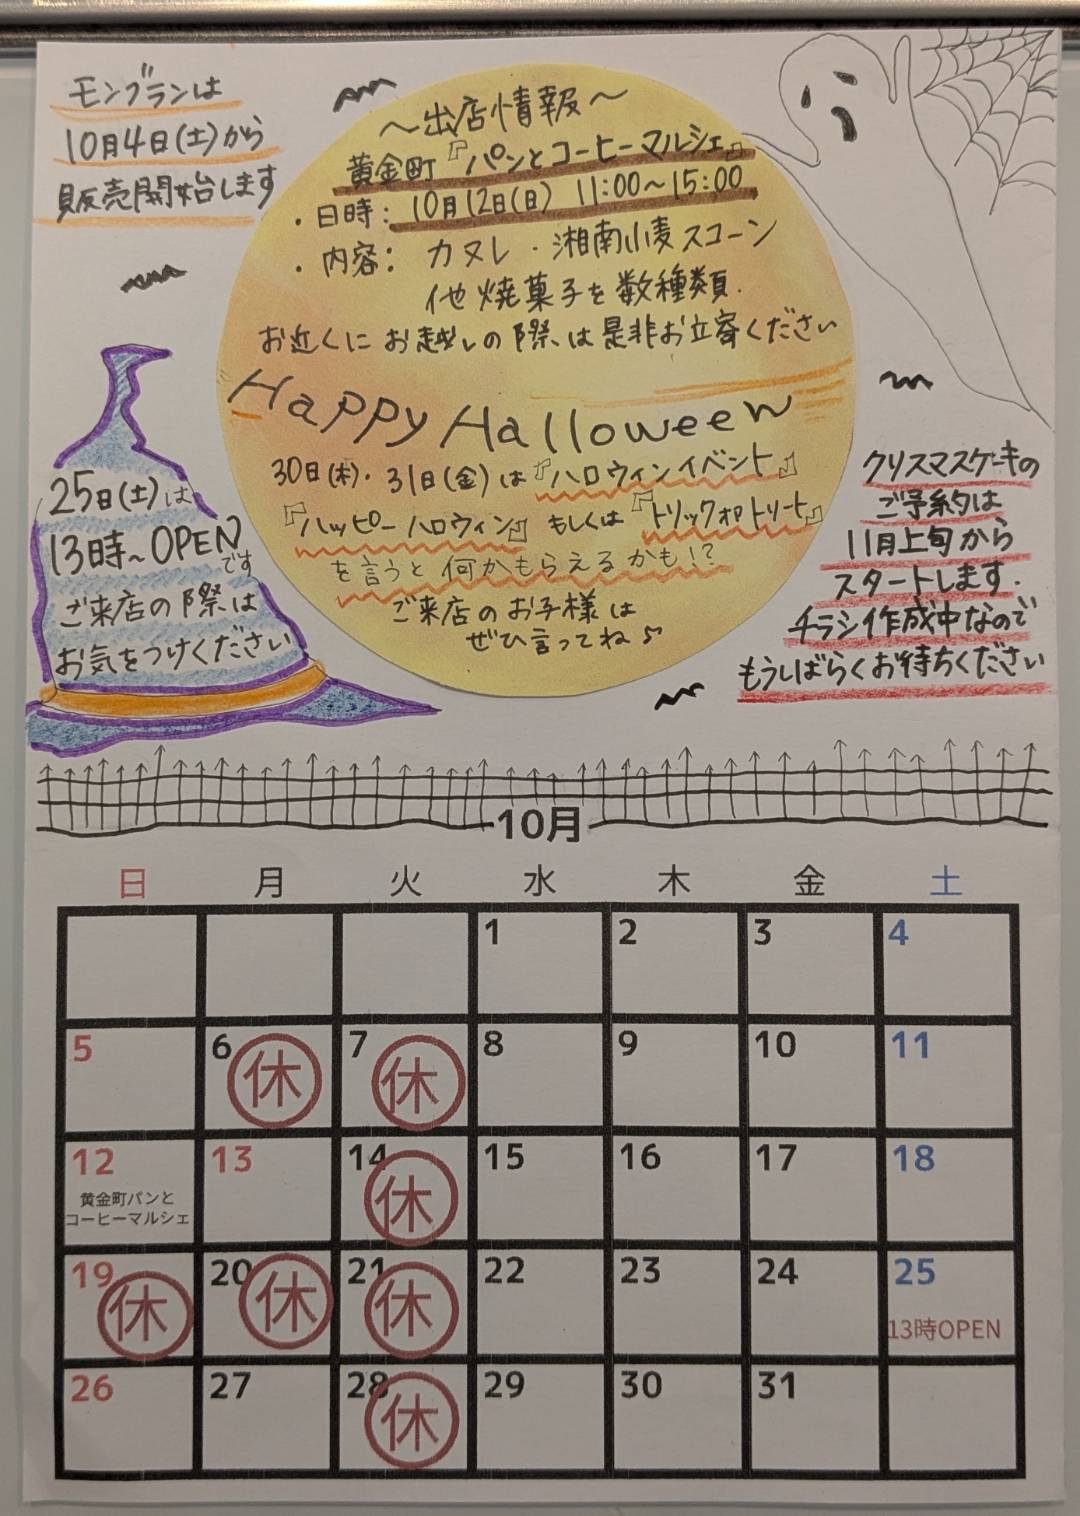 モンブランは
10月4日(土)から
販売開始します
～出店情報～
黄金町『パンとコーヒーマルシェ』
・日時： 10月12日(日) 11:00～15:00
・内容： カヌレ・湘南小麦スコーン
他焼菓子を数種類.
お近くにお越しの際は是非お立寄ください
Happy Halloween
30日(木)・31日(金)は『ハロウィンイベント』
『ハッピーハロウィン』もしくは『トリックorトリート』
を言うと何かもらえるかも!?
ご来店のお子様は
ぜひ言ってね♪
25日(土)は
13時～OPEN
です
ご来店の際は
お気をつけください
クリスマスケーキの
ご予約は
11月上旬から
スタートします.
チラシ作成中なので
もうしばらくお待ちください
10月
日 月 火 水 木 金 土
1 2 3 4
5 6 休 7 休 8 9 10 11
12 13 14 休 15 16 17 18
黄金町パンと
コーヒーマルシェ
19 休 20 休 21 休 22 23 24 25
13時OPEN
26 27 28 休 29 30 31